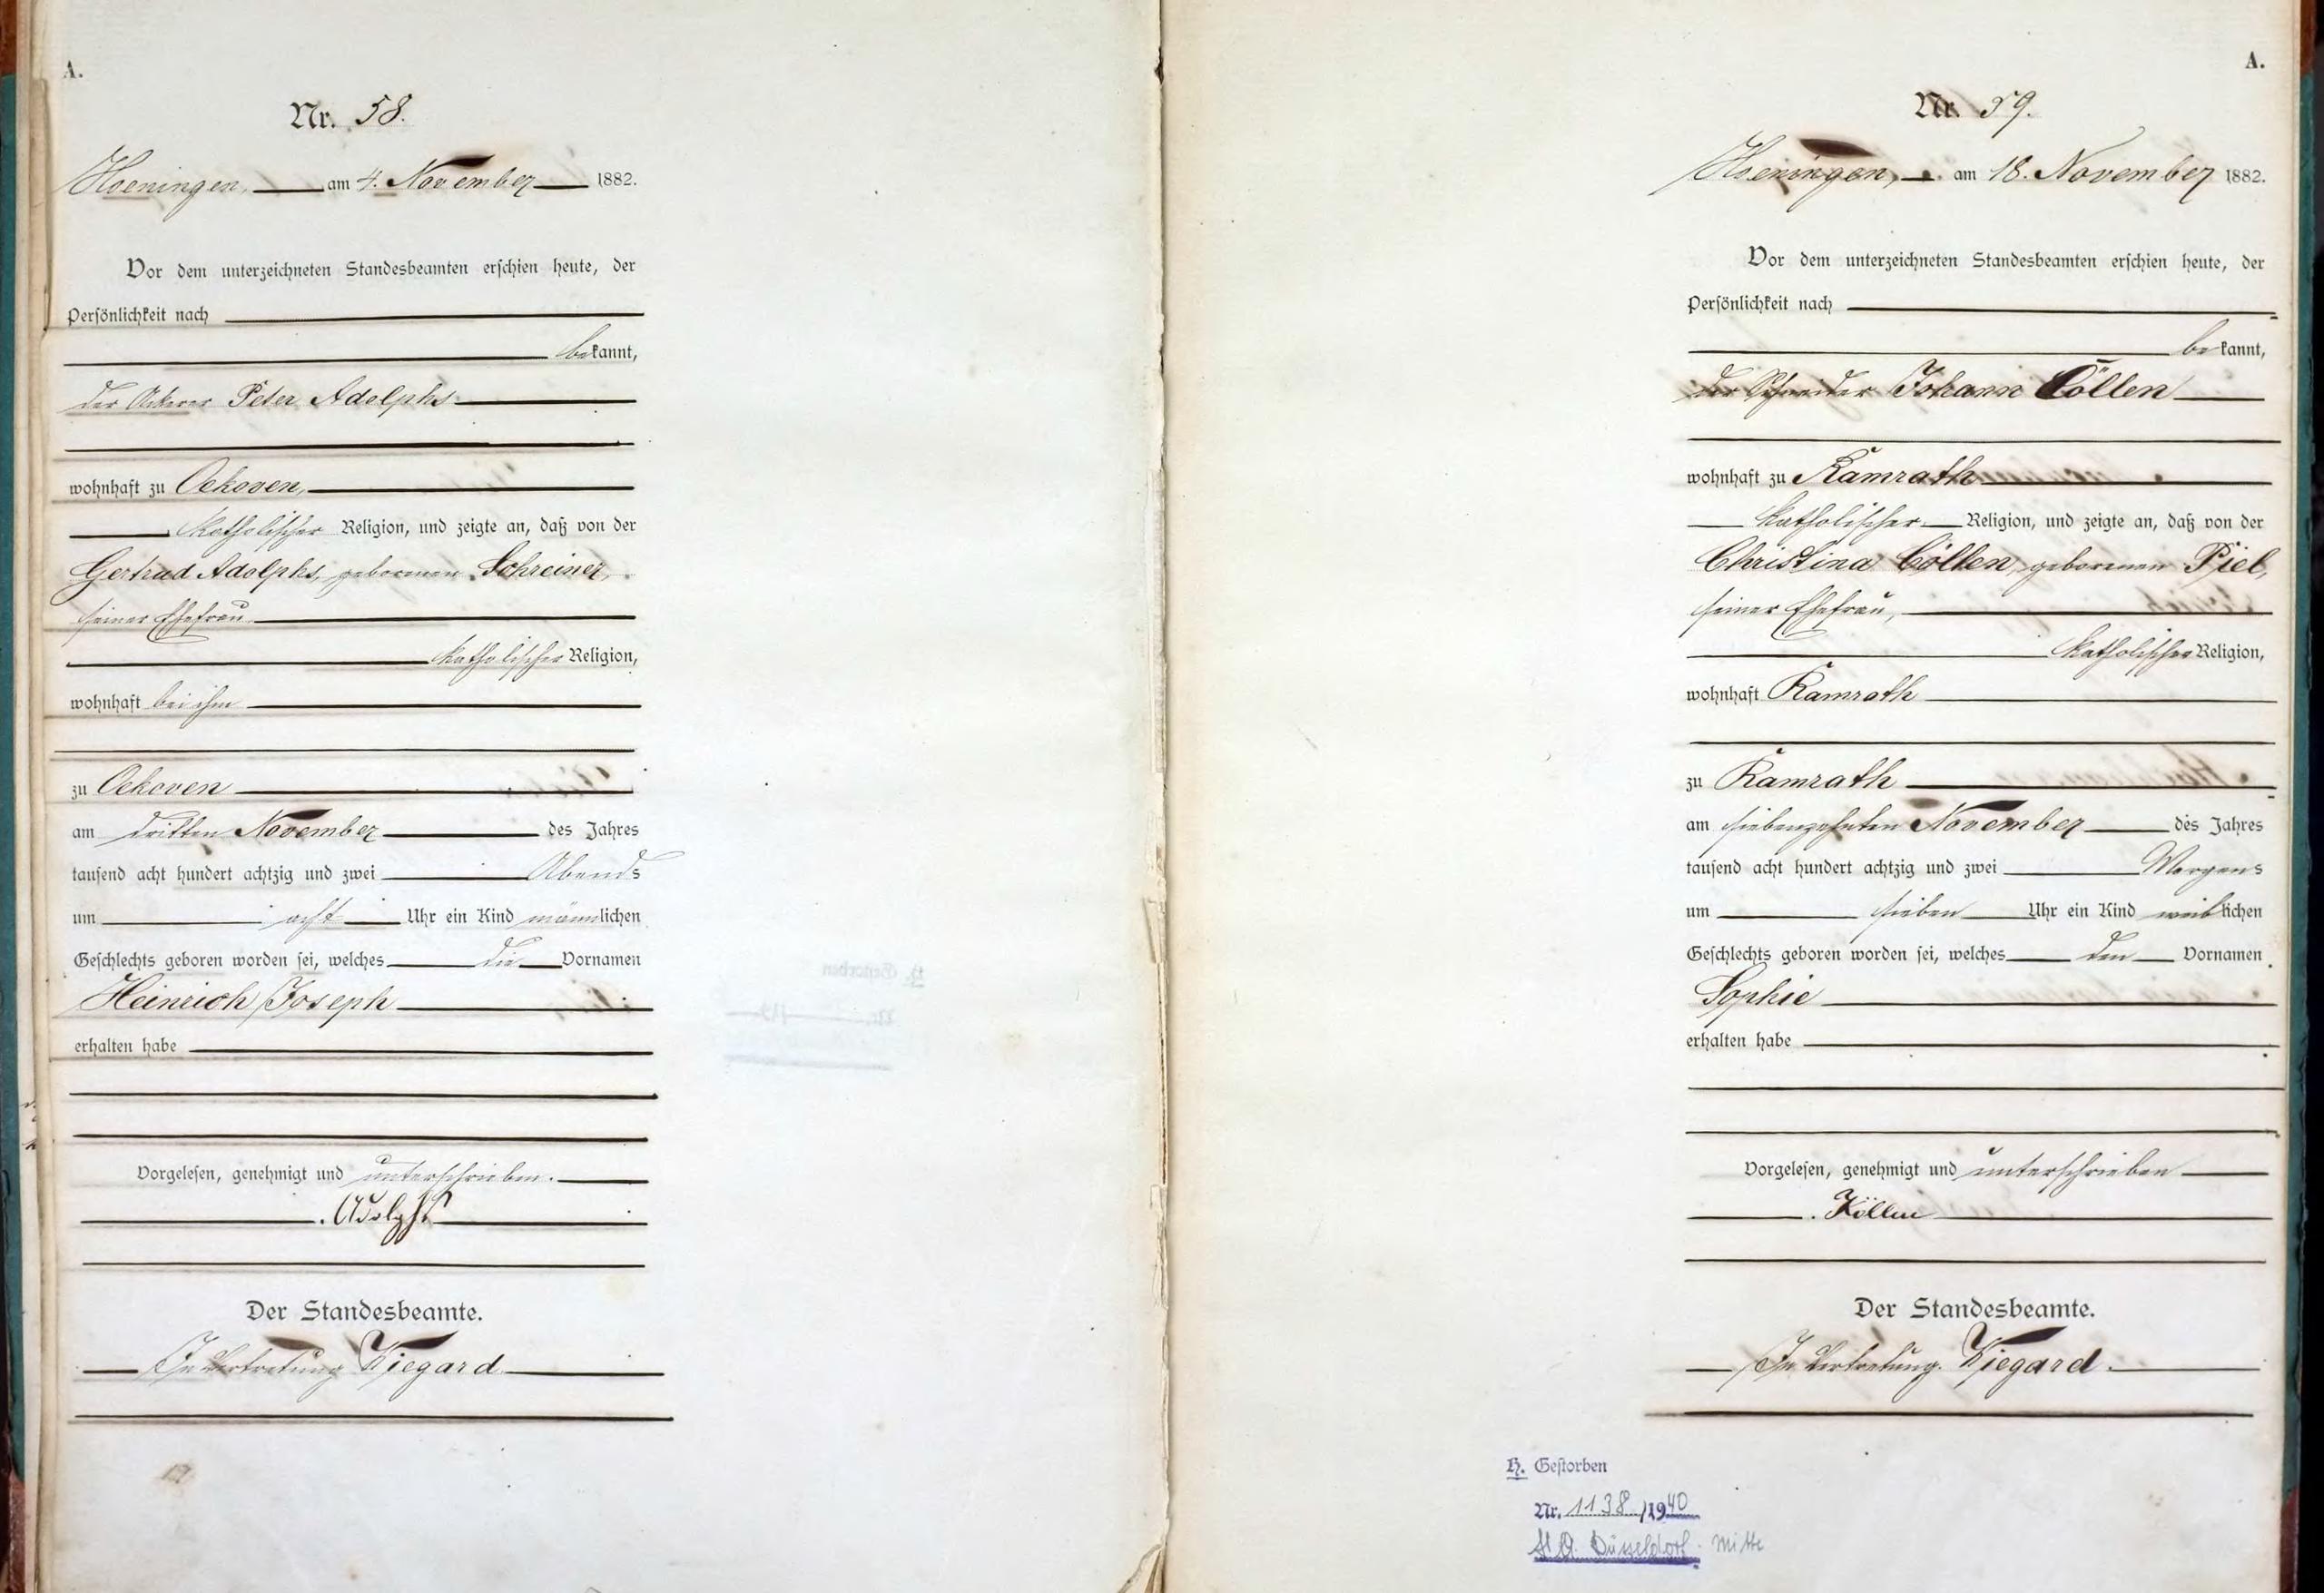 A.
Nr. 58.
Hoeningen, am 4. November 1882.
Vor dem unterzeichneten Standesbeamten erschien heute, der
Persönlichkeit nach
bekannt,
der Ackerer Peter Adolphs
wohnhaft zu Oekoven,
katholischer Religion, und zeigte an, daß von der
Gertrud Adolphs, geborenen Schreiner,
seiner Ehefrau
katholischer Religion,
wohnhaft bei ihm
zu Oekoven
am dritten November des Jahres
tausend acht hundert achtzig und zwei Abends
um acht Uhr ein Kind männlichen
Geschlechts geboren worden sei, welches die Vornamen
Heinrich Joseph
erhalten habe
Vorgelesen, genehmigt und unterschrieben.
Adolphs
Der Standesbeamte.
In Vertretung Wiegard
A.
Nr. 59.
Hoeningen, am 18. November 1882.
Vor dem unterzeichneten Standesbeamten erschien heute, der
Persönlichkeit nach
bekannt,
der Schneider Johann Cöllen
wohnhaft zu Ramrath
katholischer Religion, und zeigte an, daß von der
Christina Cöllen, geborenen Piel,
seiner Ehefrau,
katholischer Religion,
wohnhaft Ramrath
zu Ramrath
am siebenzehnten November des Jahres
tausend acht hundert achtzig und zwei Morgens
um sieben Uhr ein Kind weiblichen
Geschlechts geboren worden sei, welches den Vornamen
Sophie
erhalten habe
Vorgelesen, genehmigt und unterschrieben
Köllen
Der Standesbeamte.
In Vertretung. Wiegard.
H. Gestorben
Nr. 1138/1940
St. A. Düsseldorf-Mitte